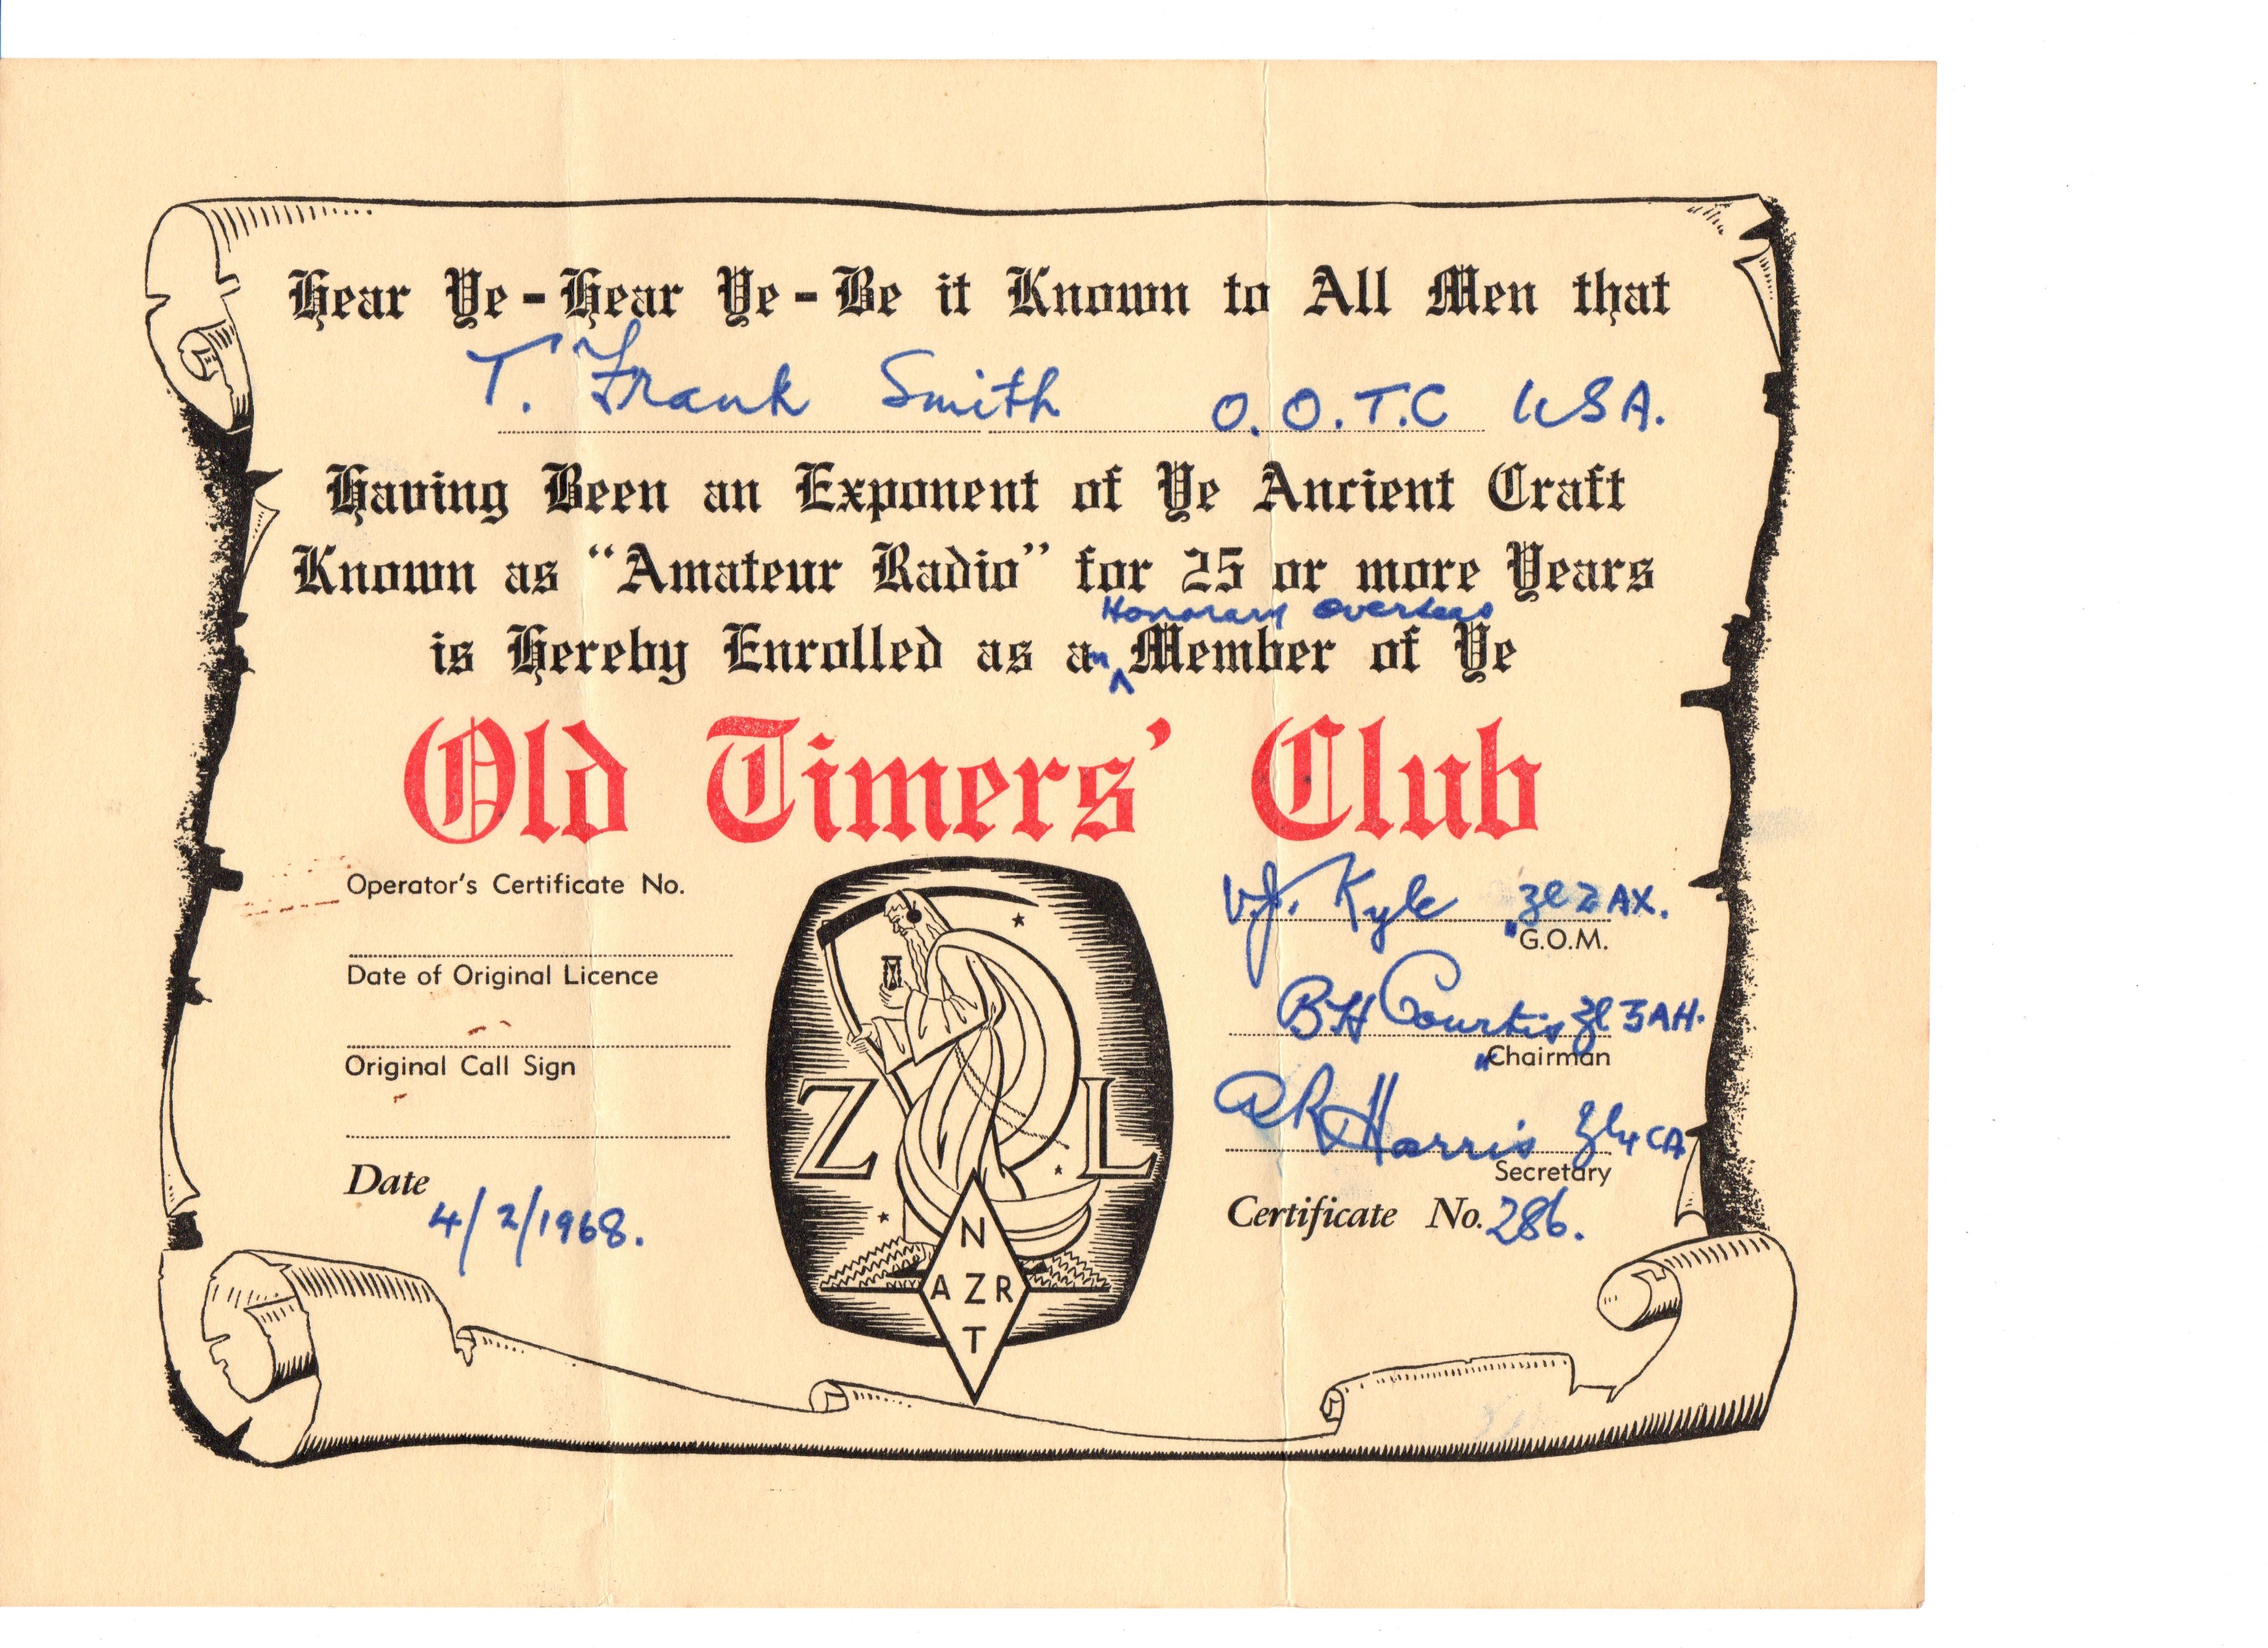 Hear Ye - Hear Ye - Be it Known to All Men that
T. Frank Smith O.O.T.C USA.
Having Been an Exponent of Ye Ancient Craft
Known as “Amateur Radio” for 25 or more Years
Honorary Overseas
is Hereby Enrolled as an ^ Member of Ye
Old Timers’ Club
Operator's Certificate No.
Date of Original Licence
Original Call Sign
Date
4/2/1968.
Z L
N
A Z R
T
V.J. Kyle zl2AX.
G.O.M.
BH Courtis zl3AH.
Chairman
RHarris zl4CA
Secretary
Certificate No. 286.